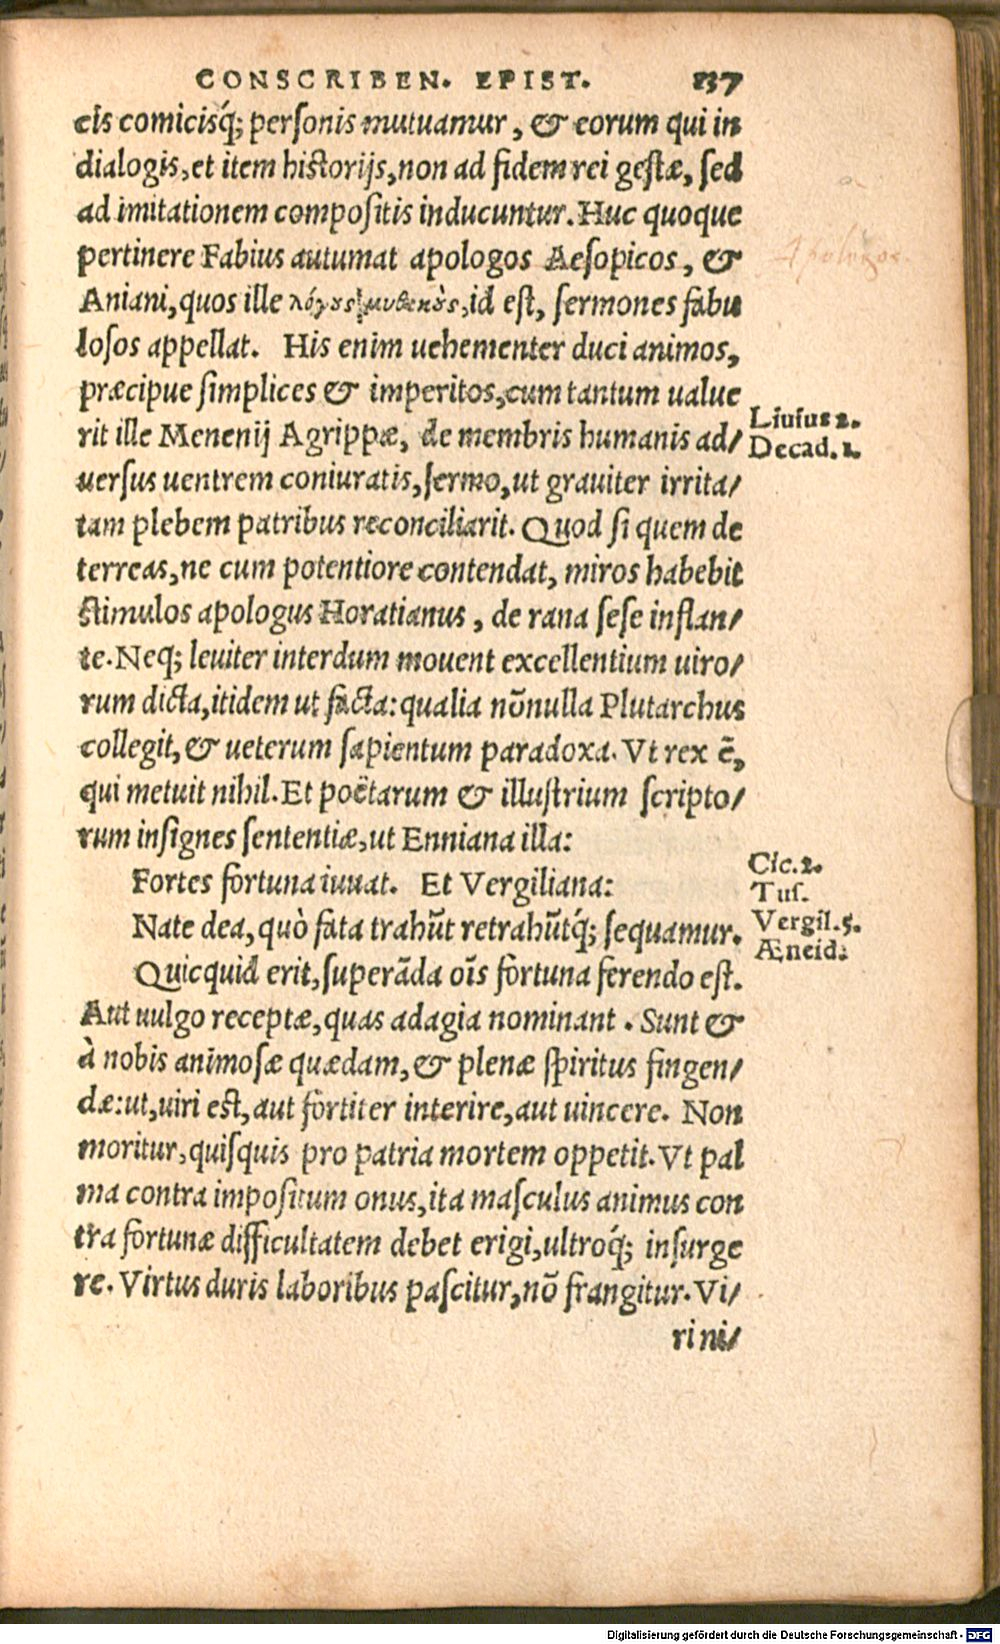 CONSCRIBEN. EPIST. 137
cis comicisq́; personis mutuamur, & eorum qui in
dialogis, et item historijs, non ad fidem rei gestæ, sed
ad imitationem compositis inducuntur. Huc quoque
pertinere Fabius autumat apologos Aesopicos, &
Apologos.
Aniani, quos ille λόγους μυθικοὺς, id est, sermones fabu
losos appellat. His enim uehementer duci animos,
præcipue simplices & imperitos, cum tantum ualue
rit ille Menenij Agrippæ, de membris humanis ad/
Liuius 2.
Decad. 1.
uersus uentrem coniuratis, sermo, ut grauiter irrita/
tam plebem patribus reconciliarit. Quod si quem de
terreas, ne cum potentiore contendat, miros habebit
stimulos apologus Horatianus, de rana sese inflan/
te. Neq; leuiter interdum mouent excellentium uiro/
rum dicta, itidem ut facta: qualia nōnulla Plutarchus
collegit, & ueterum sapientum paradoxa. Vt rex ē,
qui metuit nihil. Et poëtarum & illustrium scripto/
rum insignes sententiæ, ut Enniana illa:
Fortes fortuna iuuat. Et Vergiliana:
Cic. 2.
Tus.
Nate dea, quò fata trahūt retrahūtq́; sequamur.
Vergil. 5.
Æneid.
Quicquid erit, superāda oīs fortuna ferendo est.
Aut uulgo receptæ, quas adagia nominant. Sunt &
à nobis animosæ quædam, & plenæ spiritus fingen/
dæ: ut, uiri est, aut fortiter interire, aut uincere. Non
moritur, quisquis pro patria mortem oppetit. Vt pal
ma contra impositum onus, ita masculus animus con
tra fortunæ difficultatem debet erigi, ultroq́; insurge
re. Virtus duris laboribus pascitur, nō frangitur. Vi/
ri ni/
Digitalisierung gefördert durch die Deutsche Forschungsgemeinschaft - DFG